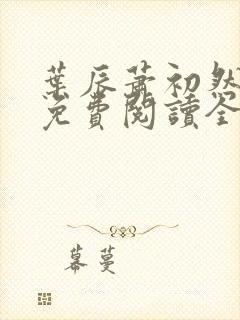 葉辰蕭初然
免費閱讀全
幕蔓